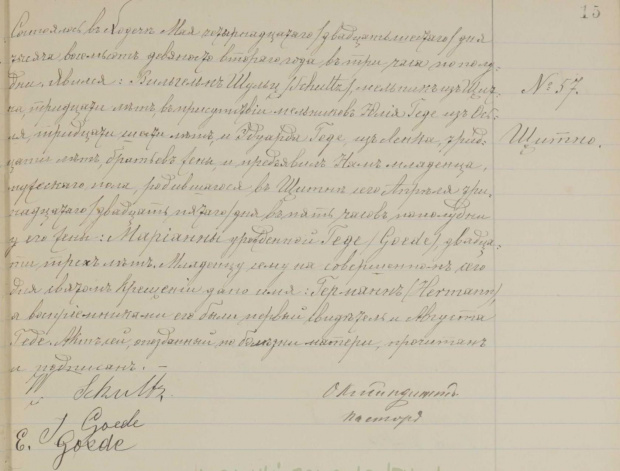 15
Состоялось въ Ходечъ Мая четырнадцатаго/двадцать шестаго/дня
тысяча восемьсотъ девяносто втораго года въ три часа пополу-
дни. Явился: Вильгельмъ Шульц /Schultz/, мельникъ изъ Щит-
на, тридцати лѣтъ, въ присутствіи мельниковъ Юлія Геде изъ
тридцати шести лѣтъ, и Эдуарда Геде, изъ трид-
цати лѣтъ, братьевъ жены, и предъявилъ Намъ младенца
мужескаго пола, родившагося въ Щитнѣ сего Апрѣля три-
надцатаго/двадцать пятаго/дня въ пять часовъ пополудни
у его жены: Маріанны урожденной Геде /Goede/ двадца-
ти трехъ лѣтъ. Младенцу сему на совершенномъ сего
дня святомъ крещеніи дано имя: Германнъ /Hermann/
а воспріемниками его были первый свидѣтель и Августа
Геде. Актъ сей, опозданный по болѣзни матери, прочитанъ
и подписанъ. —
№ 57.
Щитно.
W. Schultz
J. Goede
E. Goede
пасторъ